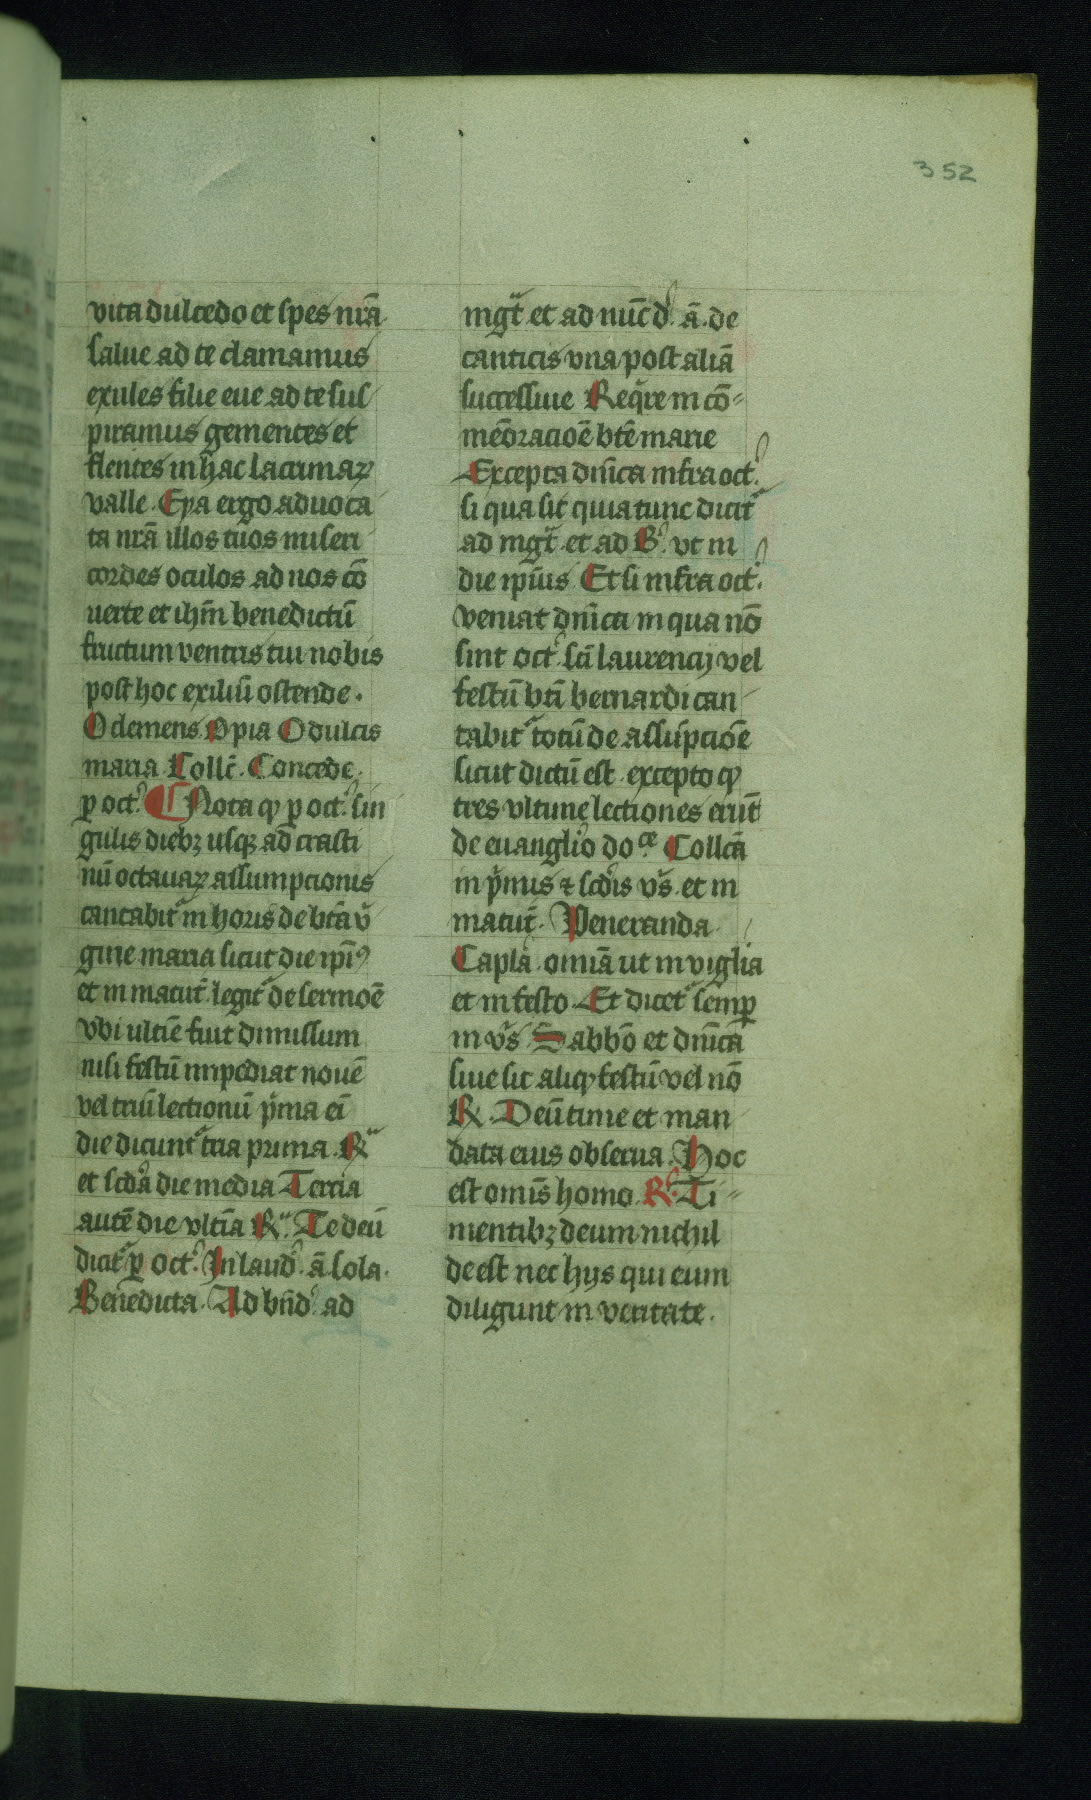 352
vita dulcedo et spes nr̄a
salue ad te clamamus
exules filie eue ad te sus
piramus gementes et
flentes in hac lacrimaꝝ
valle. Eya ergo aduoca
ta nr̄a illos tuos miseri
cordes oculos ad nos cō
uerte et ihm̄ benedictū
fructum ventris tui nobis
post hoc exilisi ostende.
O clemens O pia O dulcis
maria Collc̄. Concede.
ꝑ oct. Nota ꝙ ꝑ oct. sin
gulis diebꝫ usqꝫ ad crasti
nū octauaꝝ assumpcionis
cantabit᷑ in horis de btā v̄
gine maria sicut die ipīꝰ
et in matut̄. legit᷑ de sermoē
vbi ultīe fuit dimissum
nisi festū impediat nouē
vel triū lectionū pͥma eī
die dicunt᷑ tria prima. ℟
et scd̄a die media Tercia
autē die vltīa ℟. Te deū
dicit᷑ ꝑ oct. In laud. ā sola.
Benedicta. Ad bn̄d. ad
mgt̄ et ad nūc d. ā. de
canticis vna post aliā
successiue Reqͥre in cō-
mēoracioē btē marie
Excepta dn̄ica infra oct.
si qua sit quia tunc dicit᷑
ad mgt̄. et ad B. vt in
die ipīus Et si infra oct.
veniat dn̄ica in qua nō
sint oct. scī laurencij vel
festū btī bernardi can
tabit᷑ totū de assūpcioē
sicut dictū est. excepto ꝙ
tres vltime lectiones erūt
de euanglio do.ce Collcā
in pͥmis ⁊ scdis v̄s. et in
matut̄. Veneranda
Caplā. omīa ut in viglia
et in festo. Et dicet᷑ semꝑ
in v̄s. Sabbō et dn̄ica
siue sit aliqͥ festū vel nō
℟. Deū time et man
data eius obserua. Hoc
est omīs homo. ℟. Ti-
mentibꝫ deum nichil
deest nec hijs qui eum
diligunt in veritate.